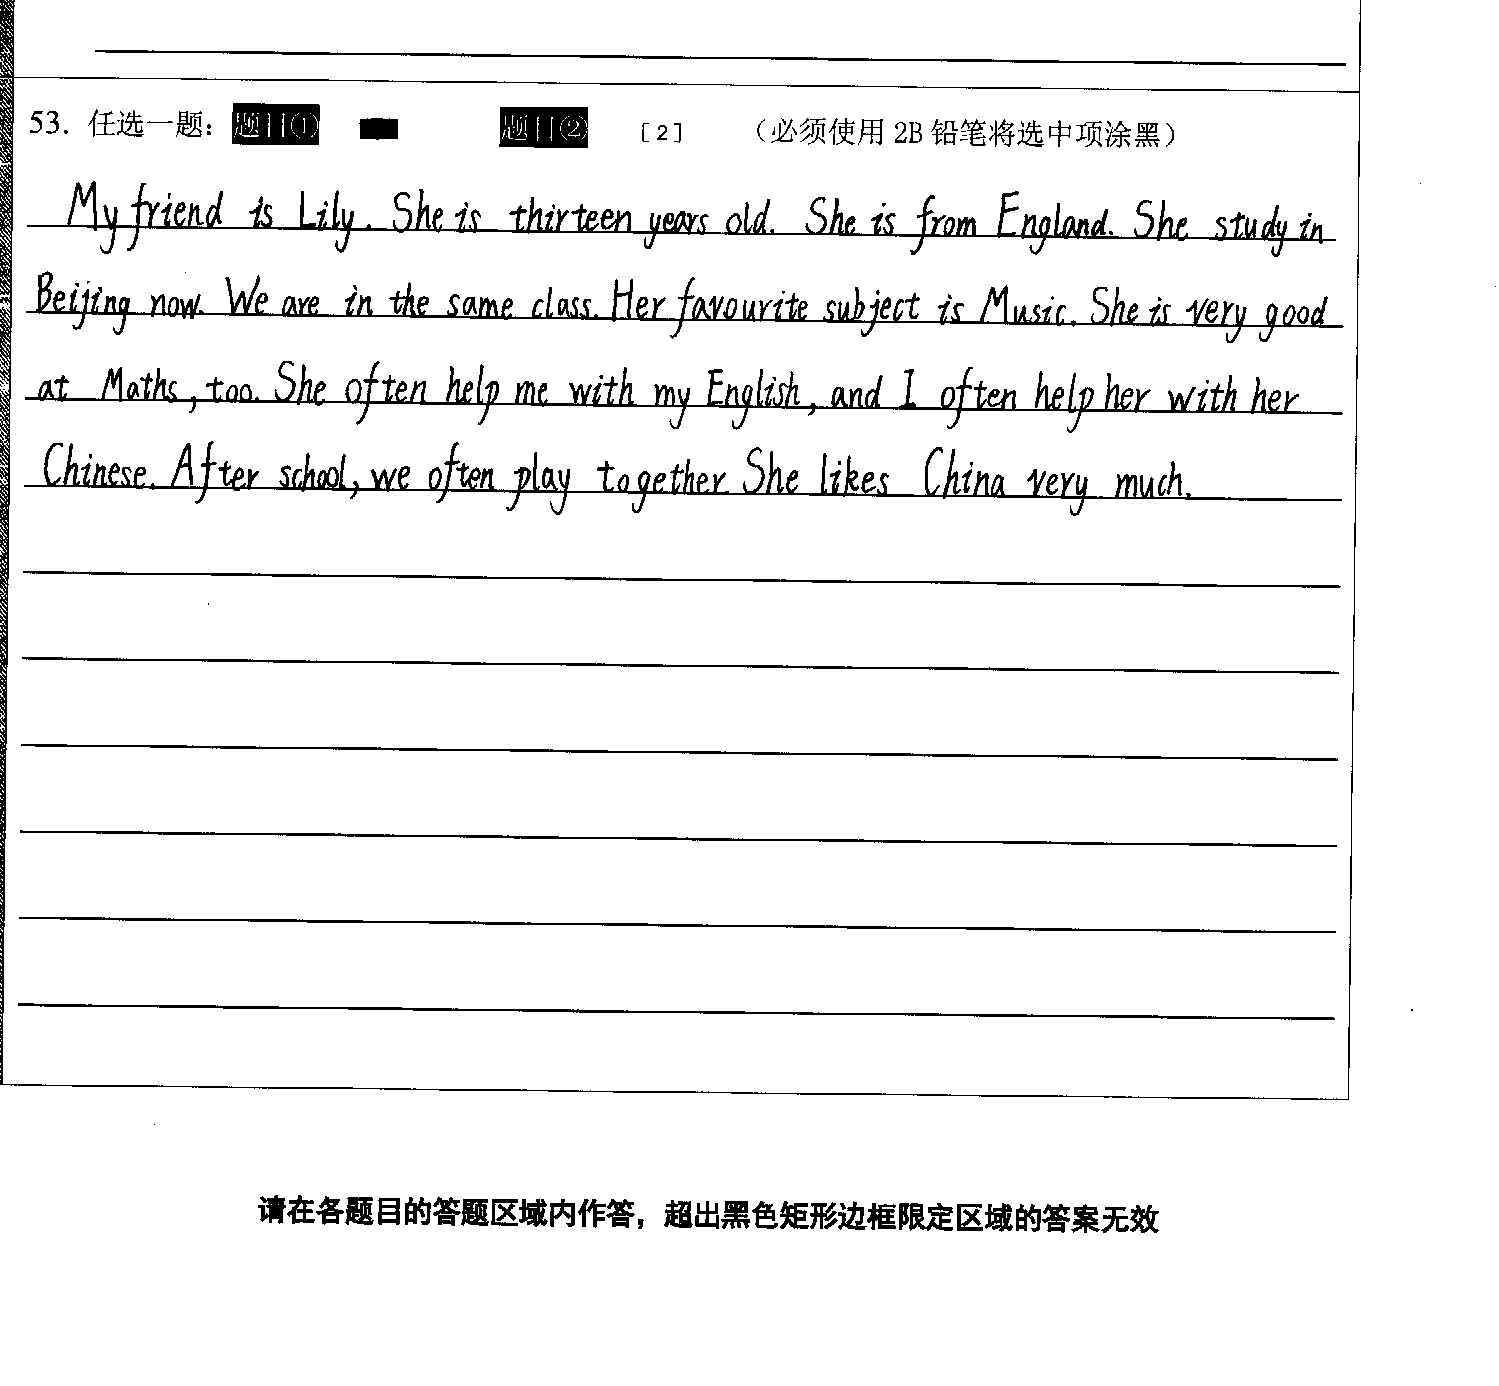 53. 任选一题： 题目① 题目② [2] （必须使用 2B 铅笔将选中项涂黑）
My friend is Lily. She is thirteen years old. She is from England. She study in
Beijing now. We are in the same class. Her favourite subject is Music. She is very good
at Maths, too. She often help me with my English, and I often help her with her
Chinese. After school, we often play together. She likes China very much.
请在各题目的答题区域内作答，超出黑色矩形边框限定区域的答案无效